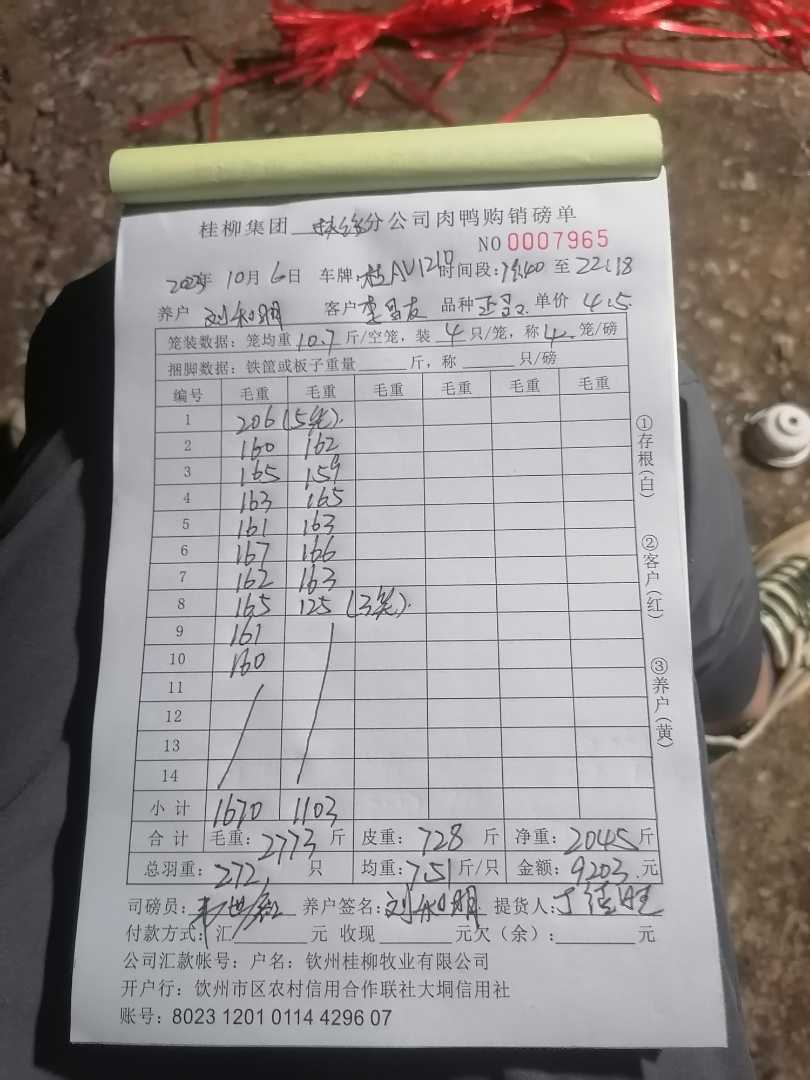 桂柳集团 分公司肉鸭购销磅单
NO 0007965
2023年 10月 6日 车牌:桂AU1210 时间段:19:40 至 22:18
养户 刘和明 客户 李昌友 品种 单价 4.5
笼装数据:笼均重 10.7 斤/空笼,装 4 只/笼,称 4 笼/磅
捆脚数据:铁筐或板子重量 斤,称 只/磅
编号 毛重 毛重 毛重 毛重 毛重 毛重
1 206 (5笼).
2 160 162
3 165 159
4 163 165
5 161 163
6 167 166
7 162 163
8 165 125 (3笼).
9 161
10 160
11
12
13
14
小计 1670 1103
合计 毛重:2773 斤 皮重:728 斤 净重:2045 斤
总羽重:272, 只 均重:7.51 斤/只 金额:9203.元
司磅员: 养户签名:刘和明 提货人:丁佳旺
付款方式:汇 元 收现 元欠(余): 元
公司汇款帐号:户名:钦州桂柳牧业有限公司
开户行:钦州市区农村信用合作联社大垌信用社
账号:8023 1201 0114 4296 07
①存根(白)
②客户(红)
③养户(黄)